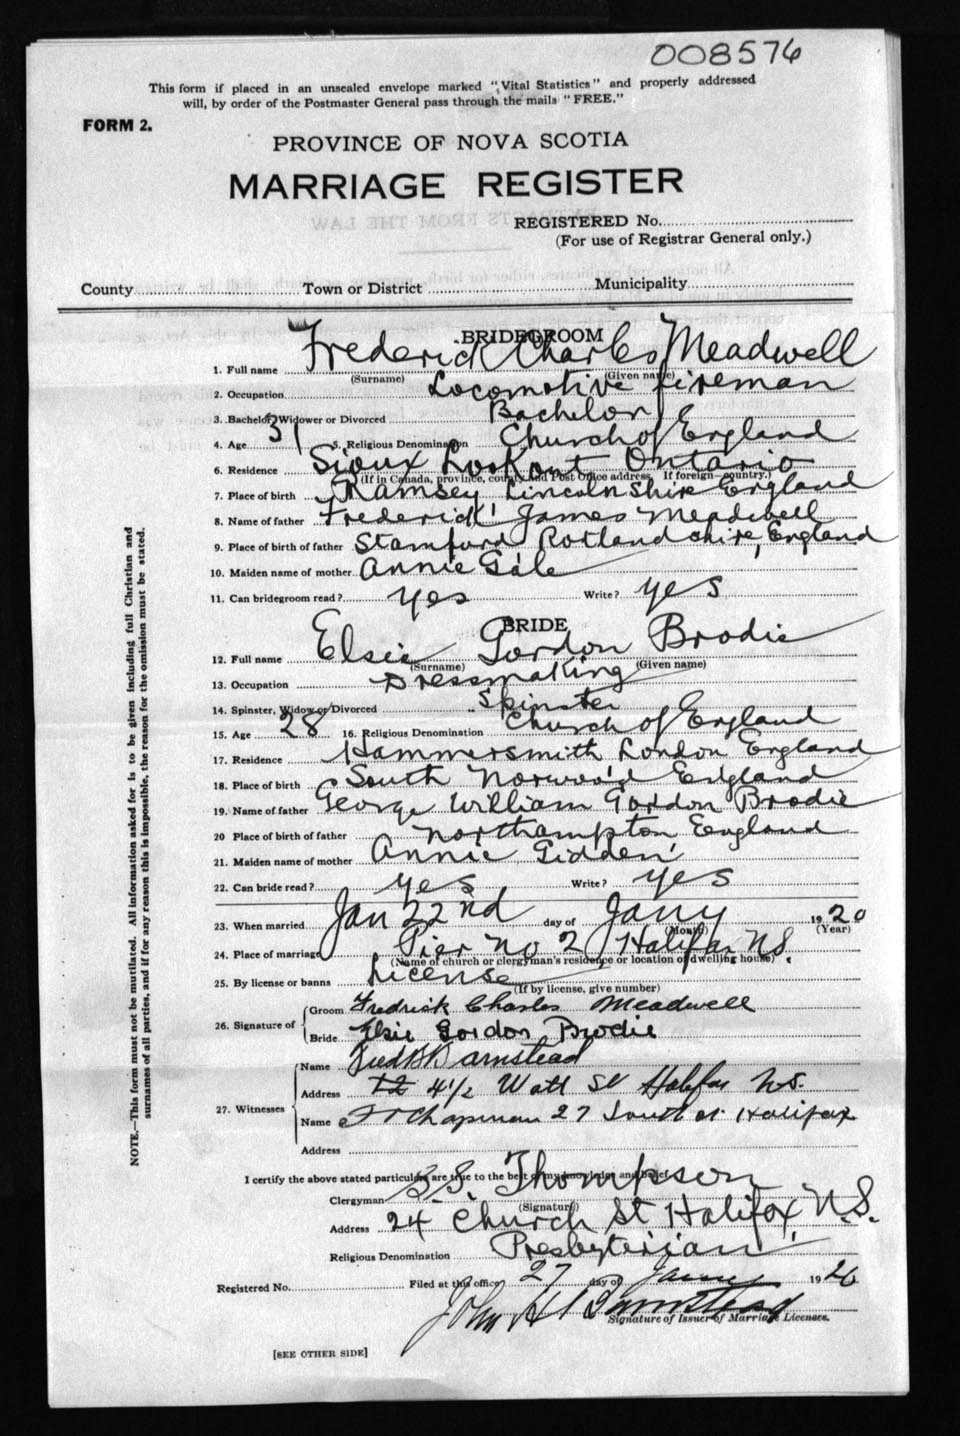 008576
This form if placed in an unsealed envelope marked "Vital Statistics" and properly addressed
will, by order of the Postmaster General pass through the mails "FREE."
FORM 2.
PROVINCE OF NOVA SCOTIA
MARRIAGE REGISTER
REGISTERED No.
(For use of Registrar General only.)
County Town or District Municipality
BRIDEGROOM
1. Full name Frederick Charles Meadwell
(Surname) (Given name)
2. Occupation Locomotive fireman
3. Bachelor, Widower or Divorced Bachelor
4. Age 31 5. Religious Denomination Church of England
6. Residence Sioux Lookout Ontario
(If in Canada, province, county and Post Office address. If foreign—country.)
7. Place of birth Ramsey Lincolnshire England
8. Name of father Frederick James Meadwell
9. Place of birth of father Stamford Rotlandshire, England
10. Maiden name of mother Annie Gale
11. Can bridegroom read? yes Write? yes
BRIDE
12. Full name Elsie Gordon Brodie
(Surname) (Given name)
13. Occupation Dressmaking
14. Spinster, Widow or Divorced Spinster
15. Age 28 16. Religious Denomination Church of England
17. Residence Hammersmith London England
18. Place of birth South Norwood England
19. Name of father George William Gordon Brodie
20 Place of birth of father Northampton England
21. Maiden name of mother Annie Gidden
22. Can bride read? yes Write? yes
23. When married Jan 22nd day of Jany 1920
(Month) (Year)
24. Place of marriage Pier No 2, Halifax N.S.
(Name of church or clergyman's residence or location of dwelling house)
25. By license or banns License
(If by license, give number)
26. Signature of
Groom Fredrick Charles Meadwell
Bride Elsie Gordon Brodie
27. Witnesses
Name Barnstead
Address 4½ Watt St Halifax N.S.
Name Chapman 27 South St. Halifax
Address
I certify the above stated particulars are true to the best of my knowledge and belief.
Clergyman B.S. Thompson
(Signature)
Address 24 Church St Halifax, N.S.
Religious Denomination Presbyterian
Registered No. Filed at this office 27 day of Jany 1920
John H Barnstead
Signature of Issuer of Marriage Licenses.
[SEE OTHER SIDE]
NOTE.—This form must not be mutilated. All information asked for is to be given including full Christian and
surnames of all parties, and if for any reason this is impossible, the reason for the omission must be stated.